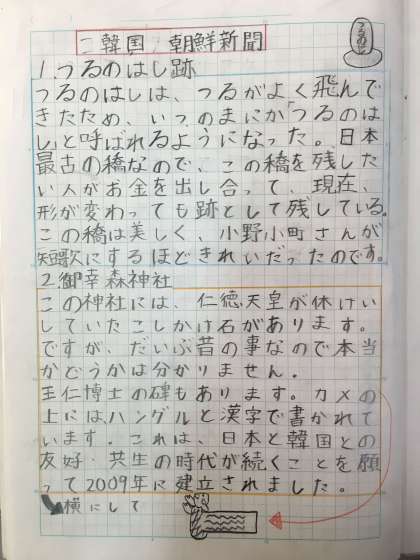 ニ韓国/朝鮮新聞
つるのはし
1.つるのはし跡
つるのはしは、つるがよく飛んで
きたため、いつのまにか「つるのは
し」と呼ばれるようになった。日本
最古の橋なので、この橋を残した
い人がお金を出し合って、現在、
形が変わっても跡として残している。
この橋は美しく、小野小町さんが
短歌にするほどきれいだったのです。
2.御幸森神社
この神社には、仁徳天皇が休けい
していたこしかけ石があります。
ですが、だいぶ昔の事なので本当
かどうかは分かりません。
王仁博士の碑もあります。カメの
上には、ハングルと漢字で書かれて
います。これは、日本と韓国との
友好・共生の時代が続くことを願
って2009年に建立されました。
横にして